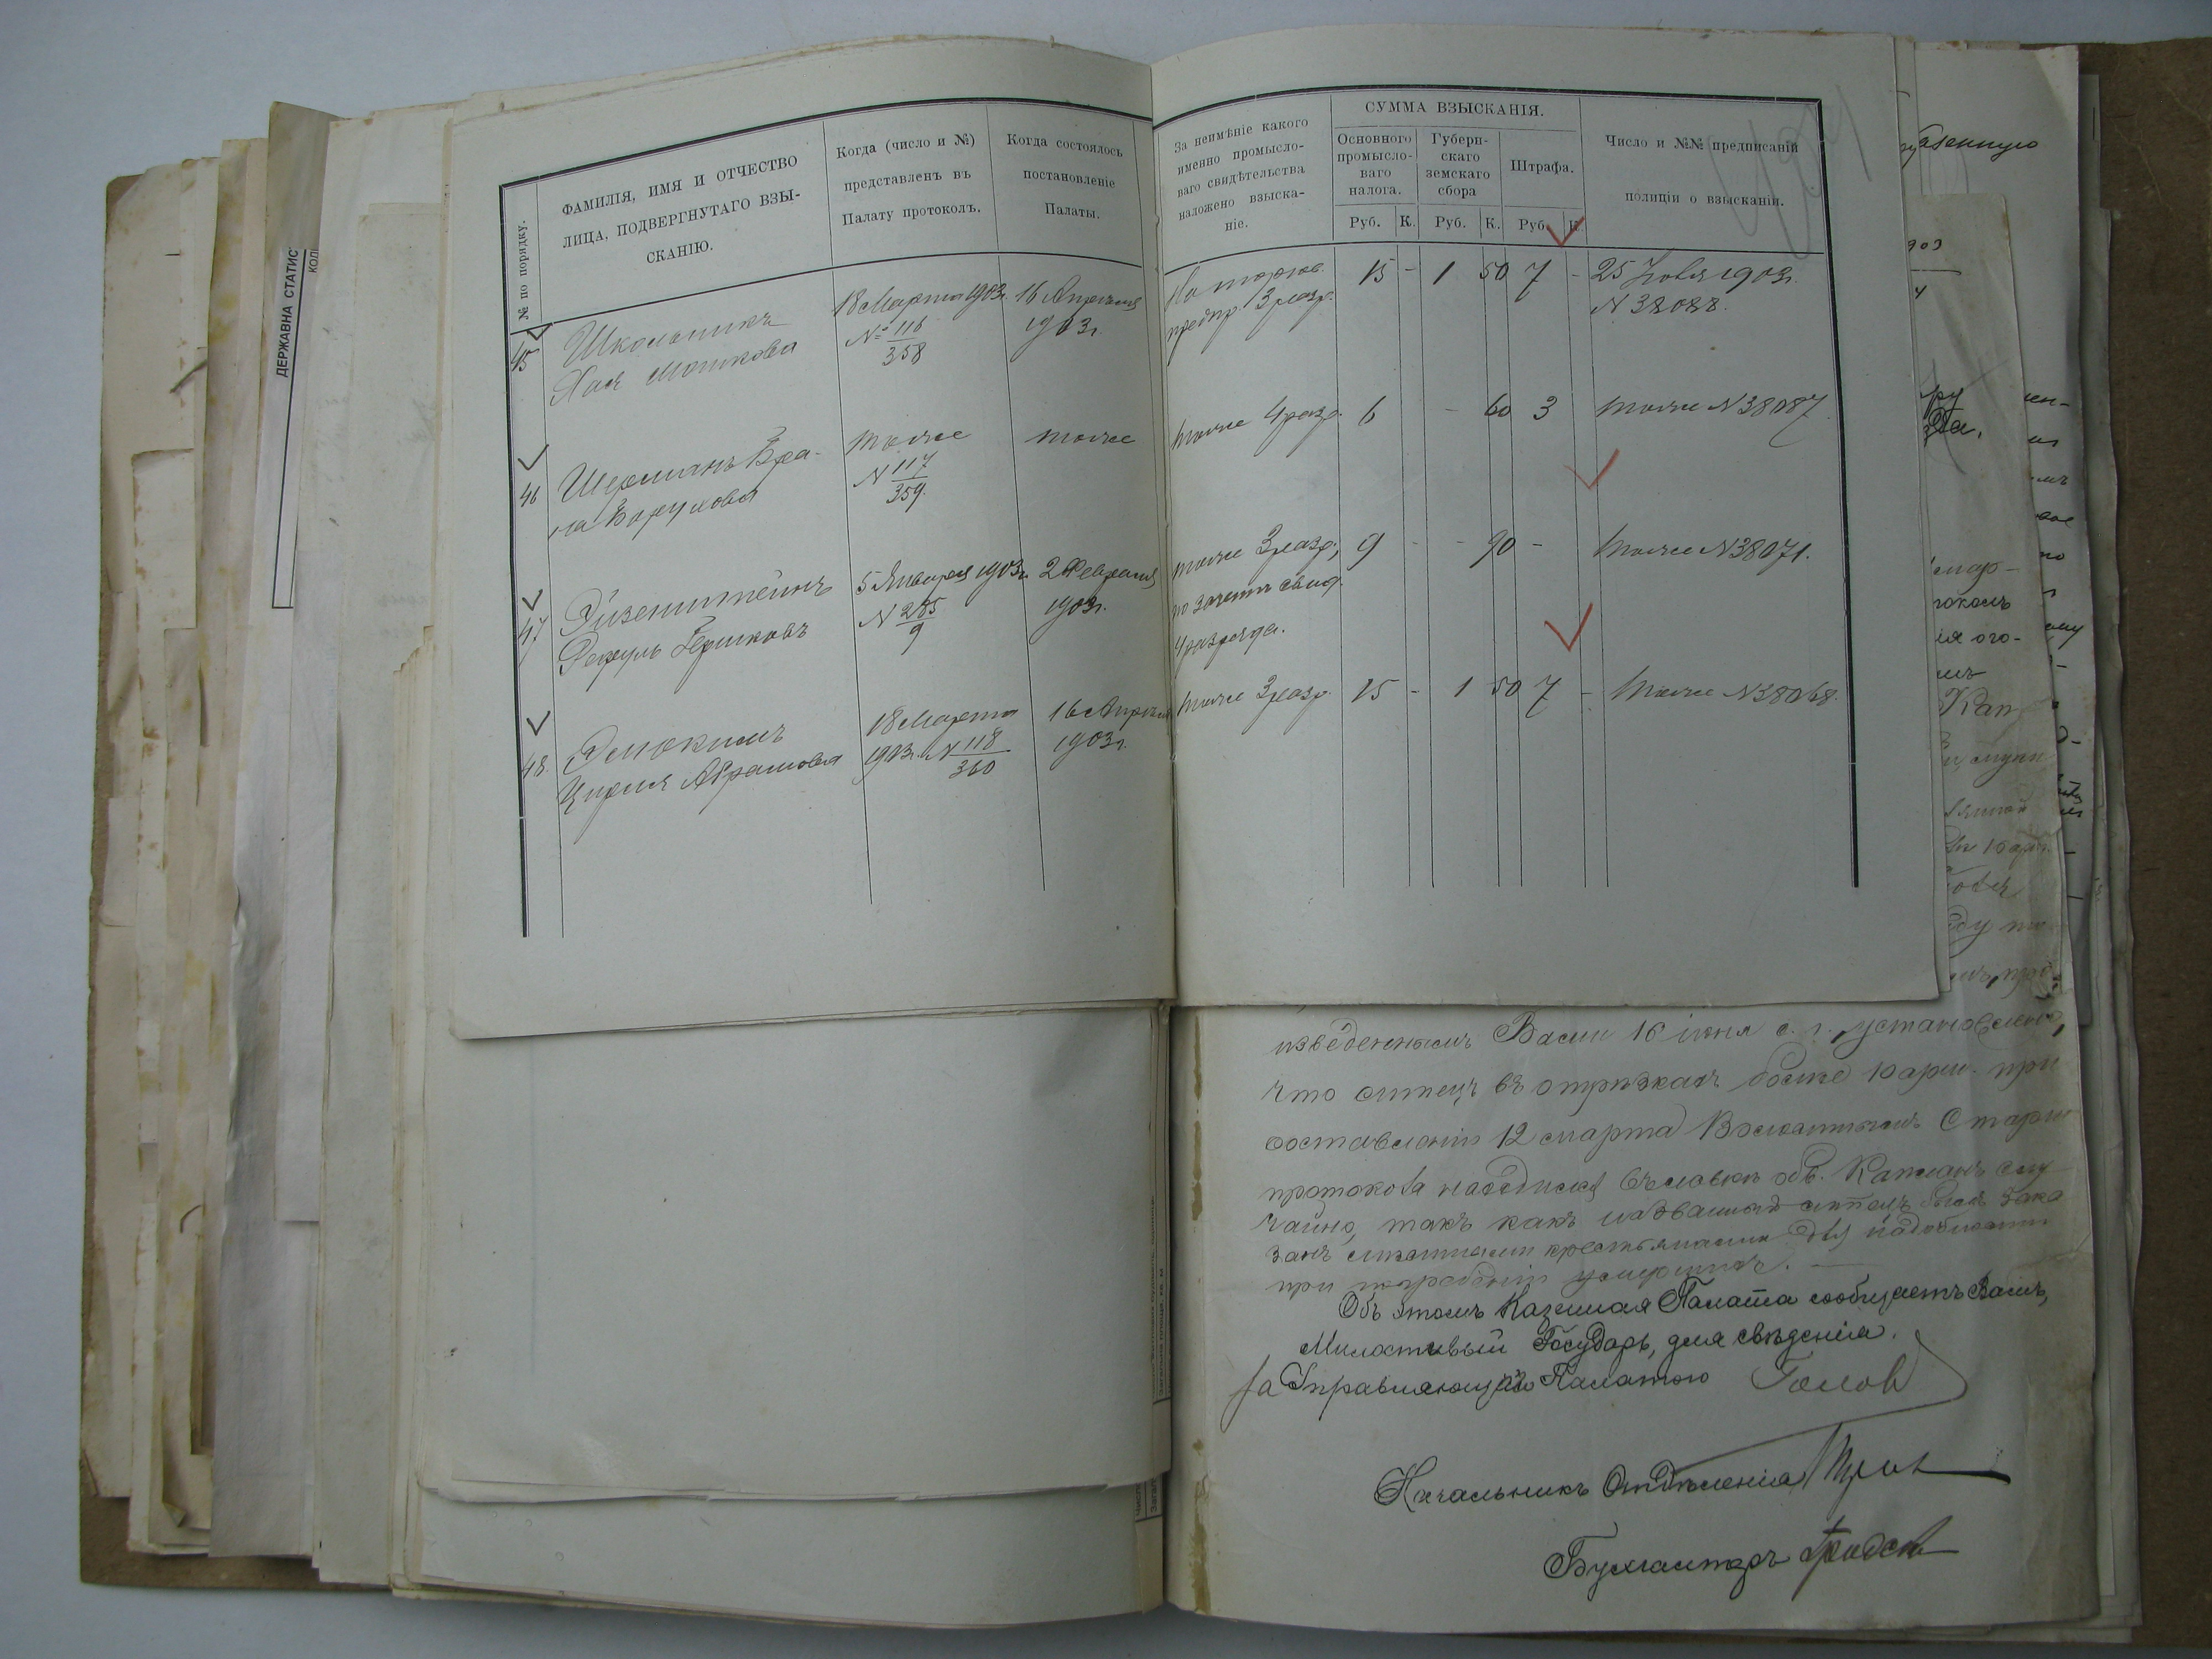 № по порядку.
ФАМИЛІЯ, ИМЯ И ОТЧЕСТВО
ЛИЦА, ПОДВЕРГНУТАГО ВЗЫ-
СКАНІЮ.
Когда (число и №)
представленъ въ
Палату протоколъ.
Когда состоялось
постановленіе
Палаты.
За неимѣніе какого
именно промысло-
ваго свидѣтельства
наложено взыска-
ніе.
СУММА ВЗЫСКАНІЯ.
Основного
промысло-
ваго
налога.
Губерн-
скаго
земскаго
сбора
Штрафа.
Руб. К. Руб. К. Руб. К.
Число и №№ предписаній
полиціи о взысканіи.
45 Школьникъ
Хая Мошкова
18 Марта 1903г.
№ 116
358
16 Апрѣля
1903г.
На торгов.
предпр. 3 разр.
15 - 1 50 7 -
25 Ноября 1903г.
N 38088.
46 Шерманъ Бра-
на Борухова
тоже
N 117
359.
тоже
тоже 4 разр.
6 - 60 3
тоже N 38087.
47 Эйзенштейнъ
Рефуль Гершковъ
5 Января 1903г.
N 285
9
2 Февраля
1903г.
тоже 3 разр.,
по зачетѣ свид.
4 разряда.
9 - - 90 -
тоже N 38071.
48. Элюкимъ
Цирля Абрамова
18 Марта
1903г. N 118
360
16 Апрѣля
1903г.
тоже 3 разр.
15 - 1 50 7 -
тоже N 38068.
ДЕРЖАВНА СТАТИС
изведеннымъ Вами 16 іюня с. г., установлено,
что ситецъ въ отрѣзкахъ болѣе 10 арш. при
составленіи 12 марта
протокола находился въ лавкѣ об. Кацманъ слу
чайно, такъ какъ названный ситецъ былъ зака
занъ мѣстными крестьянами для надобности
при погребеніи умершихъ.
Объ этомъ Казенная Палата сообщаетъ Вамъ,
Милостивый Государь, для свѣдѣнія.
За Управляющаго Палатою
Начальникъ Отдѣленія
Бухгалтеръ